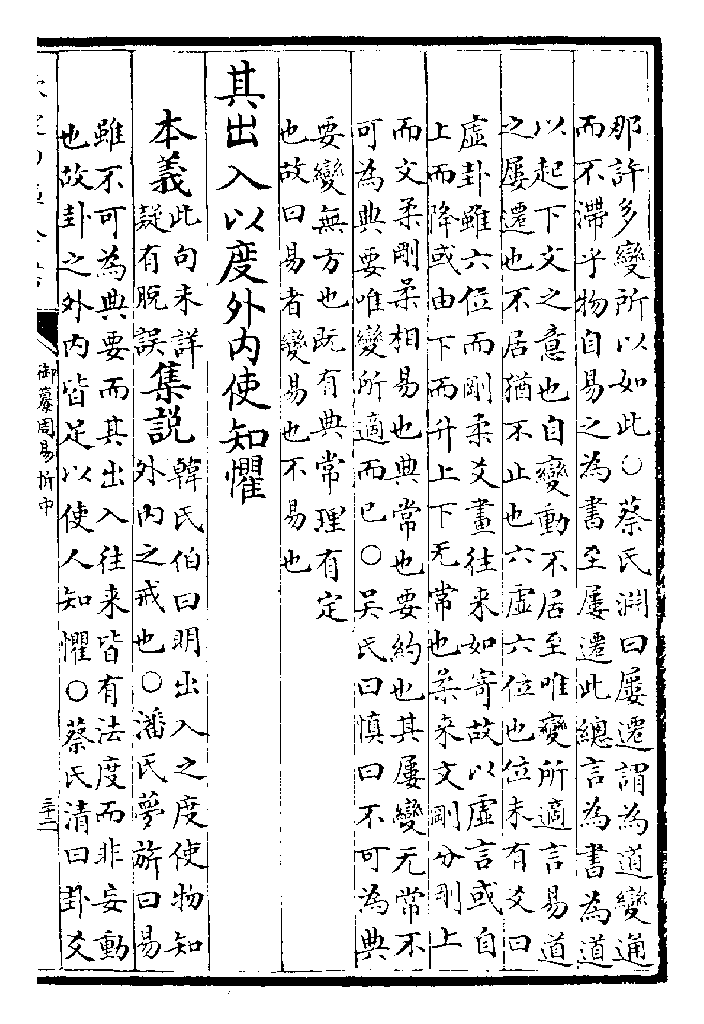 那許多變所以如此○蔡氏淵曰屢遷謂為道變通
而不滯乎物自易之為書至屢遷此總言為書為道
以起下文之意也自變動不居至唯變所適言易道
之屢遷也不居猶不止也六虛六位也位未有爻曰
虛卦雖六位而剛柔爻畫往来如寄故以虛言或自
上而降或由下而升上下无常也柔来文剛分剛上
而文柔剛柔相易也典常也要約也其屢變无常不
可為典要唯變所適而已○吳氏曰慎曰不可為典
要變無方也既有典常理有定
也故曰易者變易也不易也
其出入以度外内使知懼
本義此句未詳
疑有脫誤
集説韓氏伯曰明出入之度使物知
外内之戒也○潘氏夢旂曰易
雖不可為典要而其出入往来皆有法度而非妄動
也故卦之外内皆足以使人知懼○蔡氏清曰卦爻
御纂周易折中
三十二